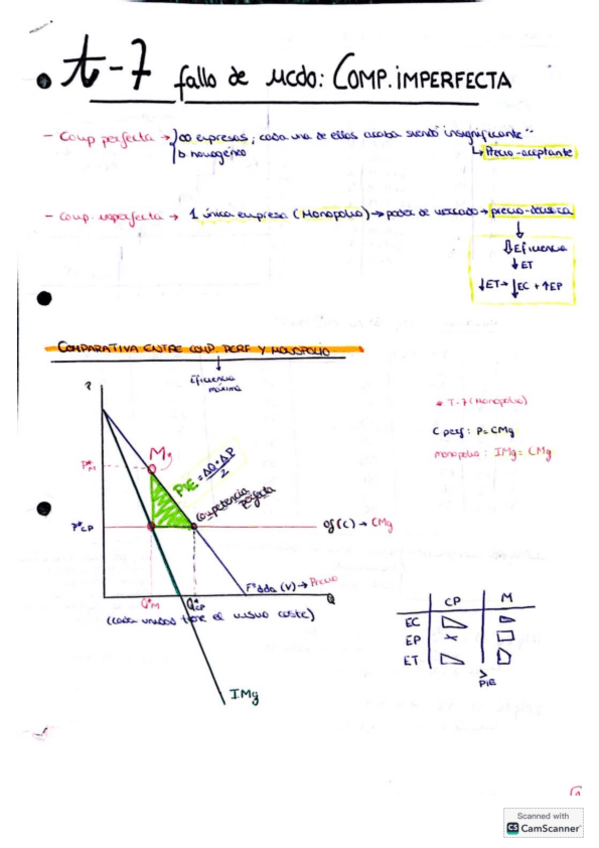 t-7 fallo de mcdo: COMP. IMPERFECTA
- Comp perfecta → ∞ empresas; cada una de ellas acaba siendo "insignificante"
b homogéneo
↳ Precio-aceptante
- Comp. imperfecta → 1 única empresa (Monopolio) → poder de mercado → precio-decisora
↓
⇓ Eficiencia
↓ ET
↓ET → ↓EC + ↑EP
COMPARATIVA ENTRE COMP. PERF Y MONOPOLIO
↓
Eficiencia
máxima
P
* T-7 (Monopolio)
C perf: P = CMg
monopolio: IMg = CMg
P*M
Mg
PIE = ΔQ·ΔP
2
Competencia
Perfecta
P*CP
Of (C) → CMg
Fº dda (V) → Precio
Q*M
Q*CP
Q
(cada unidad tiene el mismo coste)
IMg
CP M
EC
EP x
ET
>
PIE
Scanned with
CS CamScanner